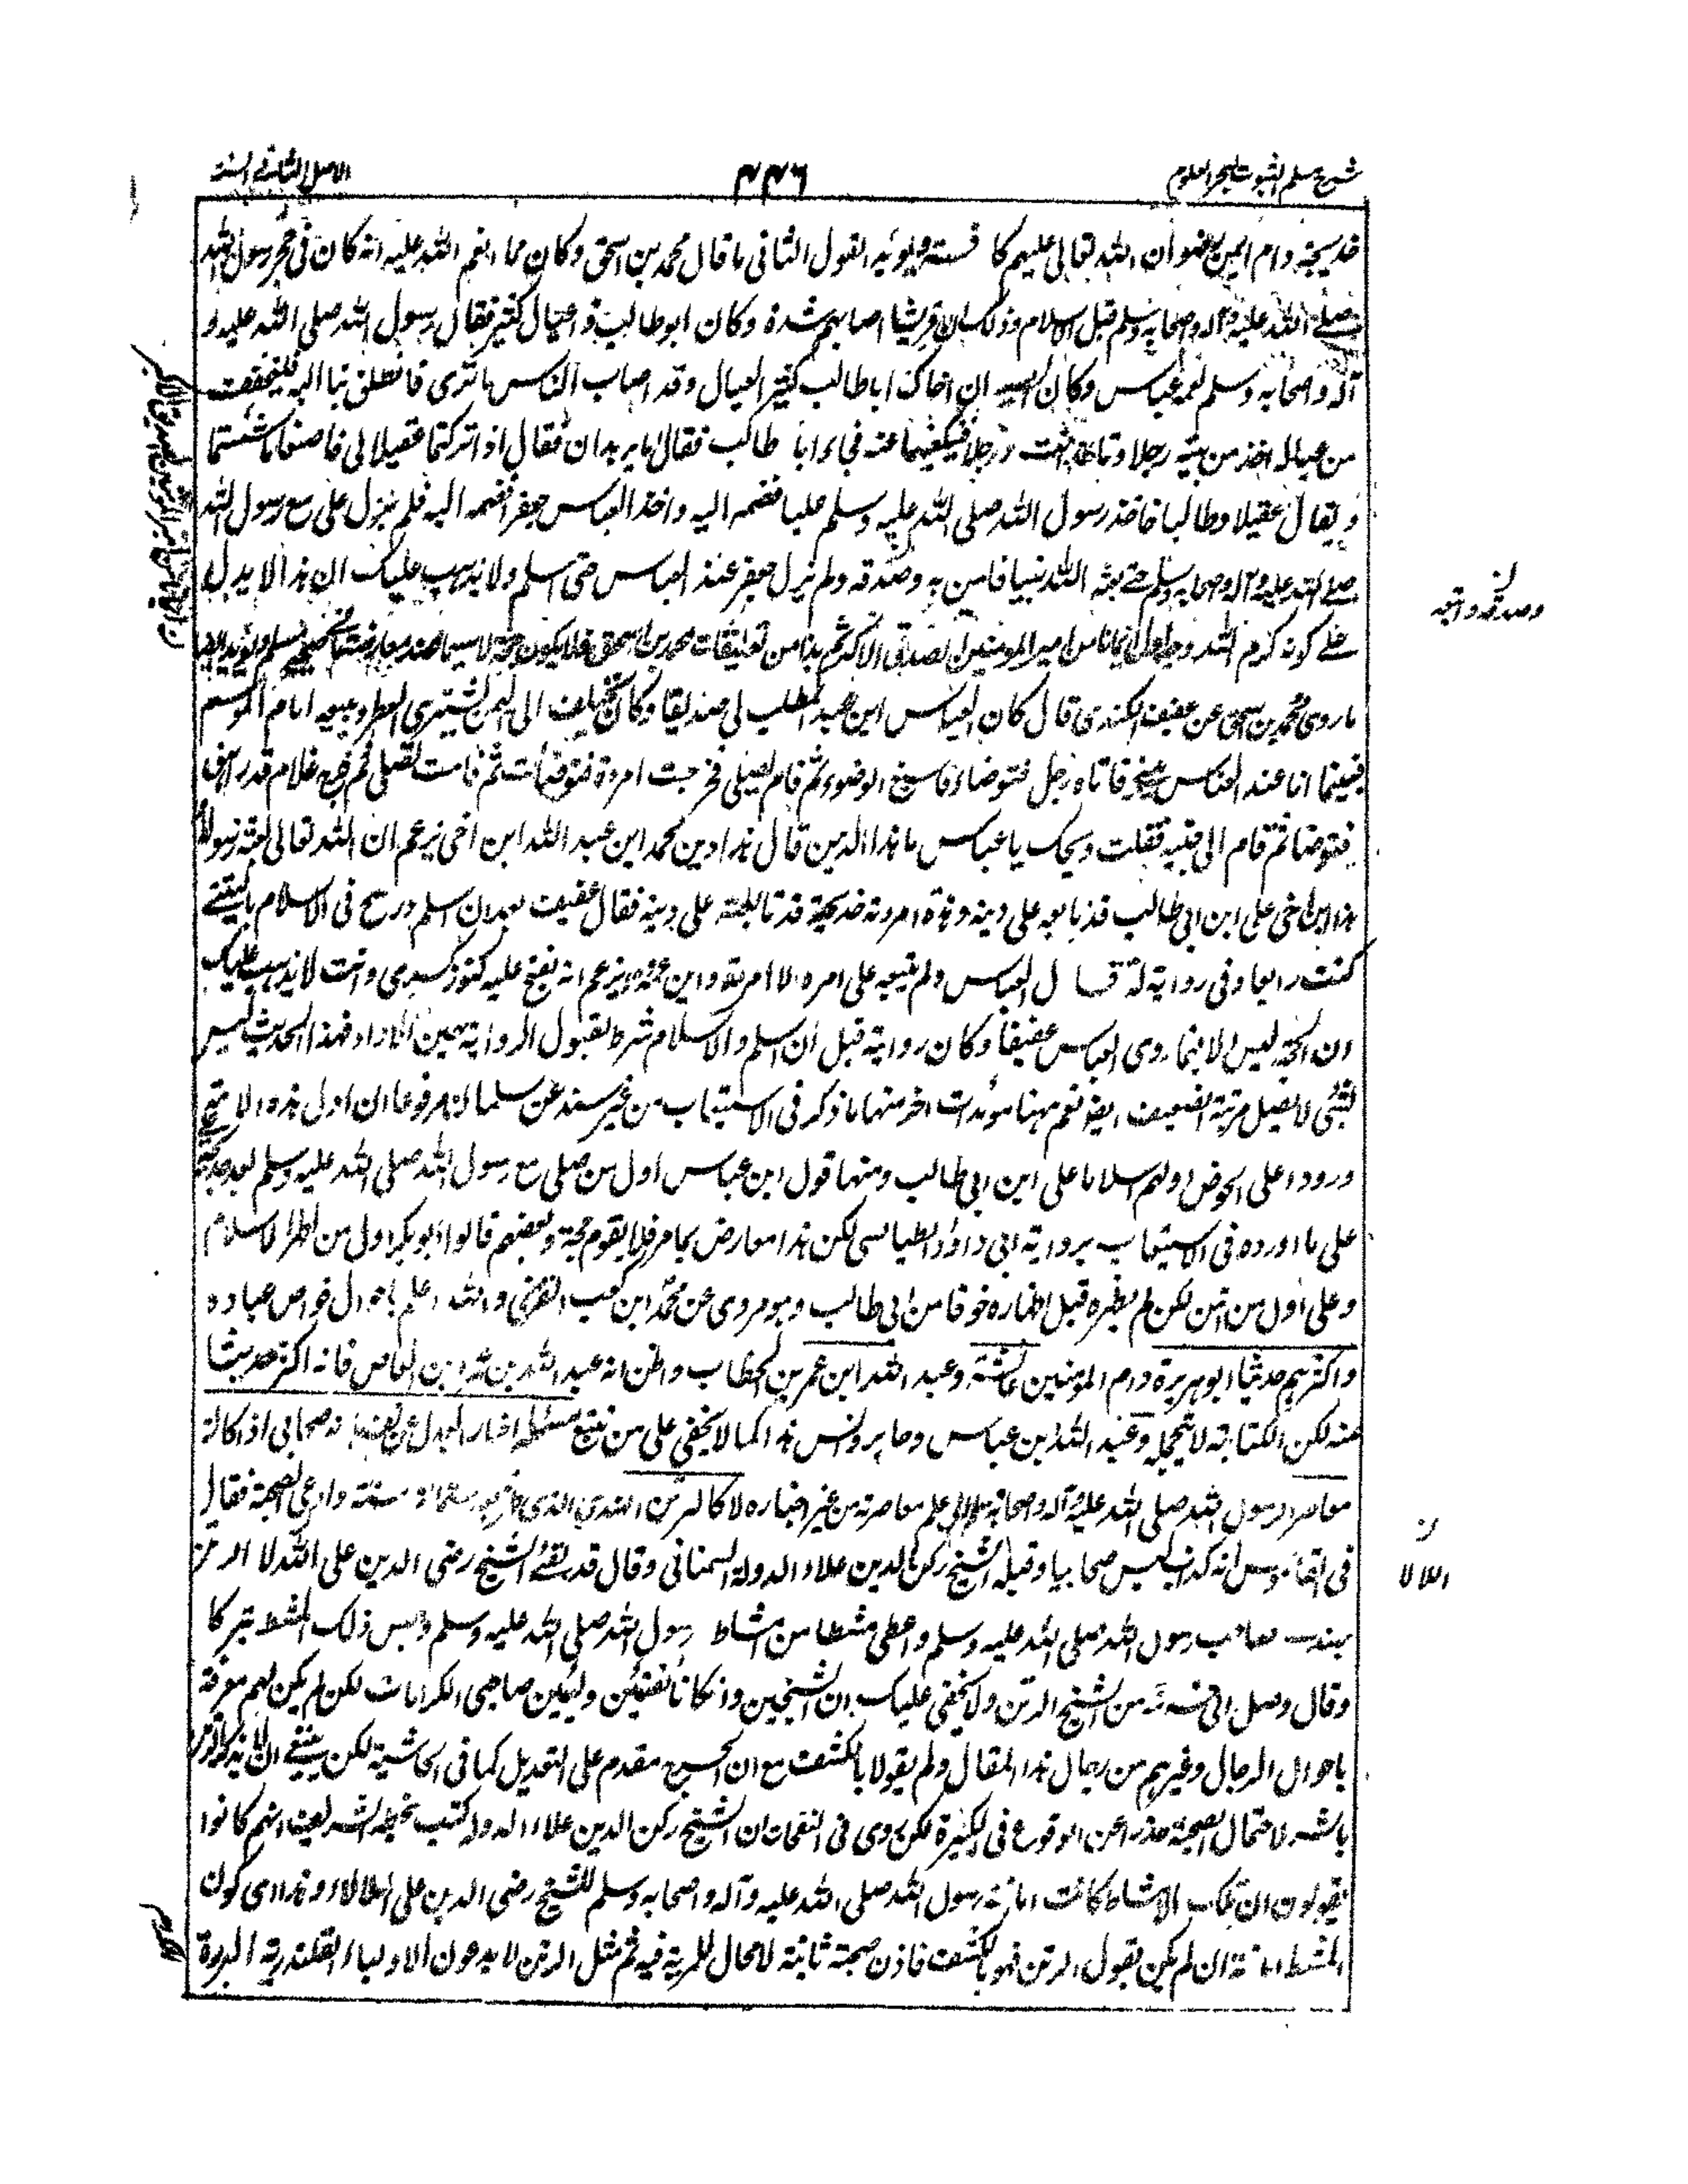 شرح مسلم الثبوت لبحر العلوم
٤٤٦
الاصل الثانی السنة
خديجة وام ايمن رضوان الله تعالى عليهم كا ويؤيد القول الثانى ما قال محمد بن اسحق وكان مما انعم الله عليه انه كان فى حجر رسول الله
صلى الله عليه وآله واصحابه وسلم قبل الاسلام وذلك ان قريشا اصابهم شدة وكان ابو طالب ذا عيال كثير فقال رسول الله صلى الله عليه و
آله واصحابه وسلم لعمه عباس وكان ان اخاك ابا طالب كثير العيال وقد اصاب الناس ما ترى فانطلق بنا اليه فلنخفف
من عياله اخذ من بنيه رجلا وتاخذ انت رجلا فنكفيهما عنه فجاءا ابا طالب فقالا ما يريدان فقال اذا تركتما عقيلا لى فاصنعا ما شئتما
ويقال عقيلا وطالبا فاخذ رسول الله صلى الله عليه وسلم عليا فضمه اليه واخذ العباس جعفرا فضمه اليه فلم يزل على مع رسول الله
صلى الله عليه وآله واصحابه وسلم حتى بعثه الله نبيا فامن به وصدقه ولم يزل جعفر عند العباس حتى اسلم ولا يذهب عليك ان هذا لا يدل
على كونه كرم الله وجهه اول ايمانا من امير المؤمنين الصديق الاكبر ثم هذا من تعليقات محمد بن اسحق فلا يكون حجة لا سيما عند معارضة
ما روى محمد بن اسحق عن عفيف الكندى قال كان العباس ابن عبد المطلب لى صديقا وكان يختلف الى اليمن يشترى العطر ويبيعه ايام الموسم
فبينما انا عند العباس بمنى فاتاه رجل فتوضأ فاسبغ الوضوء ثم قام يصلى فخرجت امرءة فتوضأت ثم قامت تصلى ثم خرج غلام قد راهق
فتوضأ ثم قام الى جنبه فقلت ويحك يا عباس ما هذا الدين قال هذا دين محمد ابن عبد الله ابن اخى يزعم ان الله تعالى بعثه رسولا
هذا ابن اخى على ابن ابى طالب قد بايعه على دينه وهذه امرءته خديجة قد تابعته على دينه فقال عفيف بعد ان اسلم ورسخ فى الاسلام ياليتنى
كنت رابعا وفى رواية له قال العباس ولم يتبعه على امره الا امرءته وابن عمه ويزعم انه يفتح عليه كنوز كسرى وانت لا يذهب عليك
ان الحجة ليس الا فيما روى العباس عفيفا وكان روايته قبل ان اسلم والاسلام شرط لقبول الرواية حين الاداء فهذا الحديث ليس
بشئ لا يصل مرتبة الضعيف ايضا نعم ههنا مؤيدات اخر منها ما ذكر فى الاستيعاب من غير سند عن سلمان مرفوعا ان اول هذه الامة
ورودا على الحوض اولهم اسلاما على ابن ابى طالب ومنها قول ابن عباس اول من صلى مع رسول الله صلى الله عليه وسلم بعد خديجة
على ما اورده فى الاستيعاب برواية ابى داؤد الطيالسى لكن هذا معارض بما مر فلا يقوم حجة وبعضهم قالوا ابو بكر اول من اظهر الاسلام
وعلى اول من آمن لكن لم يظهره قبل اظهاره خوفا من ابى طالب وهو مروى عن محمد ابن كعب القرظى والله اعلم باحوال خواص عباده
واكثرهم حديثا ابو هريرة وام المؤمنين عائشة وعبد الله ابن عمر بن الخطاب واظن انه عبد الله بن عمرو بن العاص فانه اكثر حديثا
منه لكن الكتابة لا تتحمله وعبد الله بن عباس وجابر وانس هذا كما لا يخفى على من تتبع مسئلة اخبار العدل عن نفسه بانه صحابى اذا كان
معاصرا لرسول الله صلى الله عليه وآله واصحابه وسلم اى علم معاصرته من غير اخباره لا كالرتن الهندى الذى وادعى الصحبة فقال
فى القاموس انه كذاب ليس صحابيا وقبله الشيخ ركن الدين علاء الدولة السمنانى وقال قد لقى الشيخ رضى الدين على اللالا الرتن
بهند صاحب رسول الله صلى الله عليه وسلم واعطى مشطا من امشاط رسول الله صلى الله عليه وسلم ولبس ذلك المشط تبركا
وقال وصل الى خرقة من الشيخ الرتن ولا يخفى عليك ان الشيخين وان كانا ثقتين وليين صاحبى الكرامات لكن لم يكن لهم معرفة
باحوال الرجال وغيرهم من رجال هذا المقال ولم يقولا بالكشف مع ان الجرح مقدم على التعديل كما فى الحاشية لكن ينبغى ان لا يذكر الرتن
بالشر لاحتمال الصحبة حذرا عن الوقوع فى الكبيرة لكن روى فى النفحات ان الشيخ ركن الدين علاء الدولة كتب بخطه الشريف انهم كانوا
يقولون ان تلك الامشاط كانت امانة رسول الله صلى الله عليه وآله واصحابه وسلم للشيخ رضى الدين على اللالا وهذا اى كون
المشط امانة ان لم يكن بقول الرتن فهو بالكشف فاذن صحبته ثابتة لا مجال للمرية فيه ثم مثل الرتن لا يدعون الاولياء القلندرية البررة
وصدقه واتبعه
اللالا